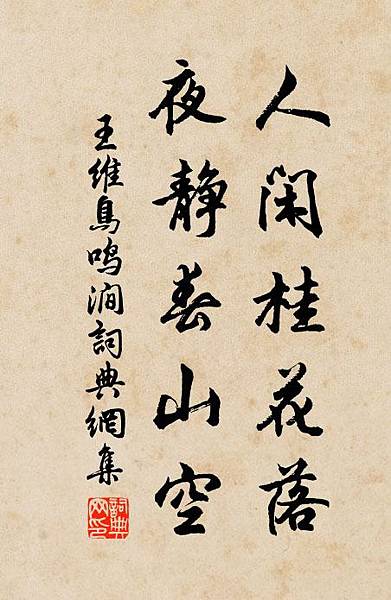 人闲桂花落
夜静春山空
王维鳥鸣澗詞典網集
詞典網印